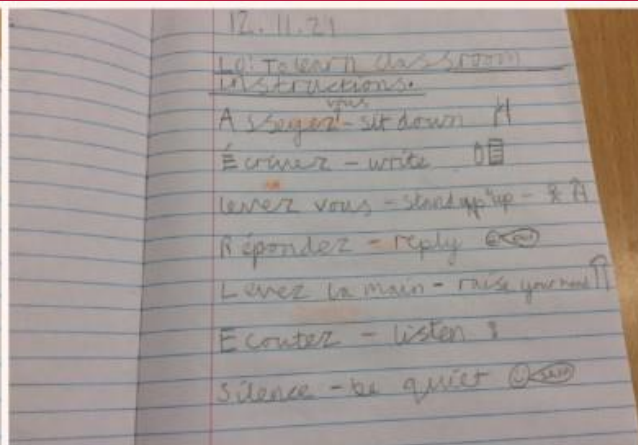 12.11.21
LO: To learn classroom
instructions.
vous
Asseyez - sit down
Écrivez - write
levez vous - stand up
Répondez - reply
Levez la main - raise your hand
Ecoutez - listen
Silence - be quiet